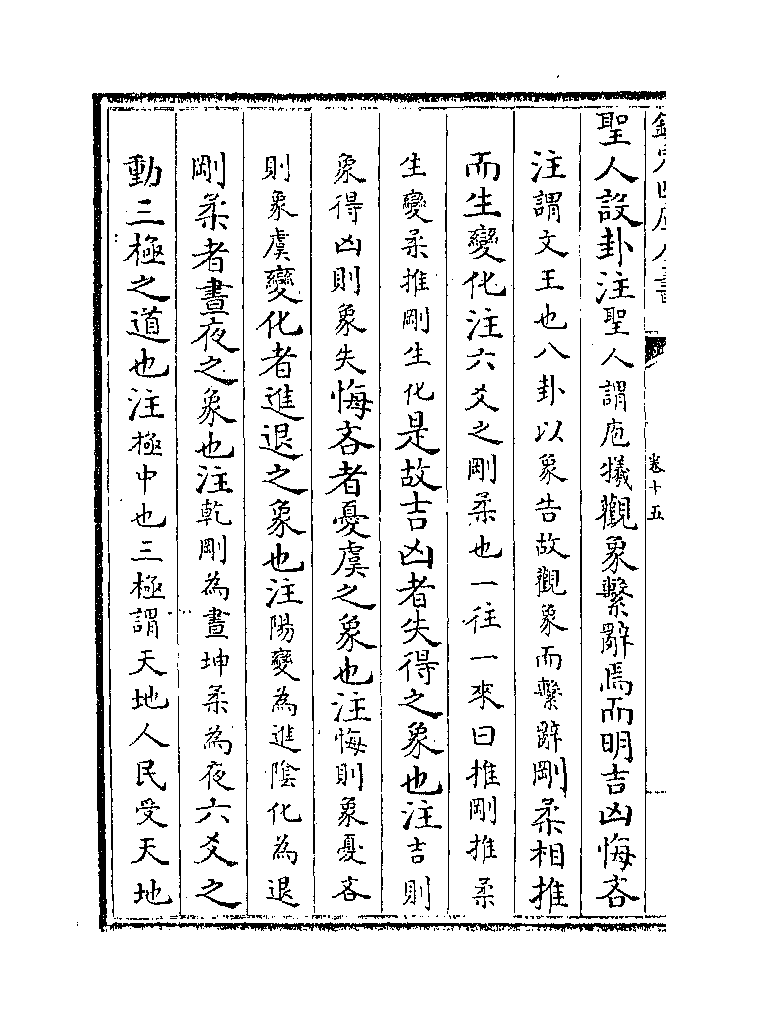 欽定四庫全書
卷十五
聖人設卦注聖人謂庖犧觀象繫辭焉而明吉凶悔吝
注謂文王也八卦以象告故觀象而繫辭剛柔相推
而生變化注六爻之剛柔也一往一來曰推剛推柔
生變柔推剛生化是故吉凶者失得之象也注吉則
象得凶則象失悔吝者憂虞之象也注悔則象憂吝
則象虞變化者進退之象也注陽變為進陰化為退
剛柔者晝夜之象也注乾剛為晝坤柔為夜六爻之
動三極之道也注極中也三極謂天地人民受天地